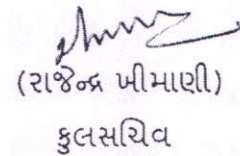 (રાજેન્દ્ર ખીમાણી)
કુલસચિવ